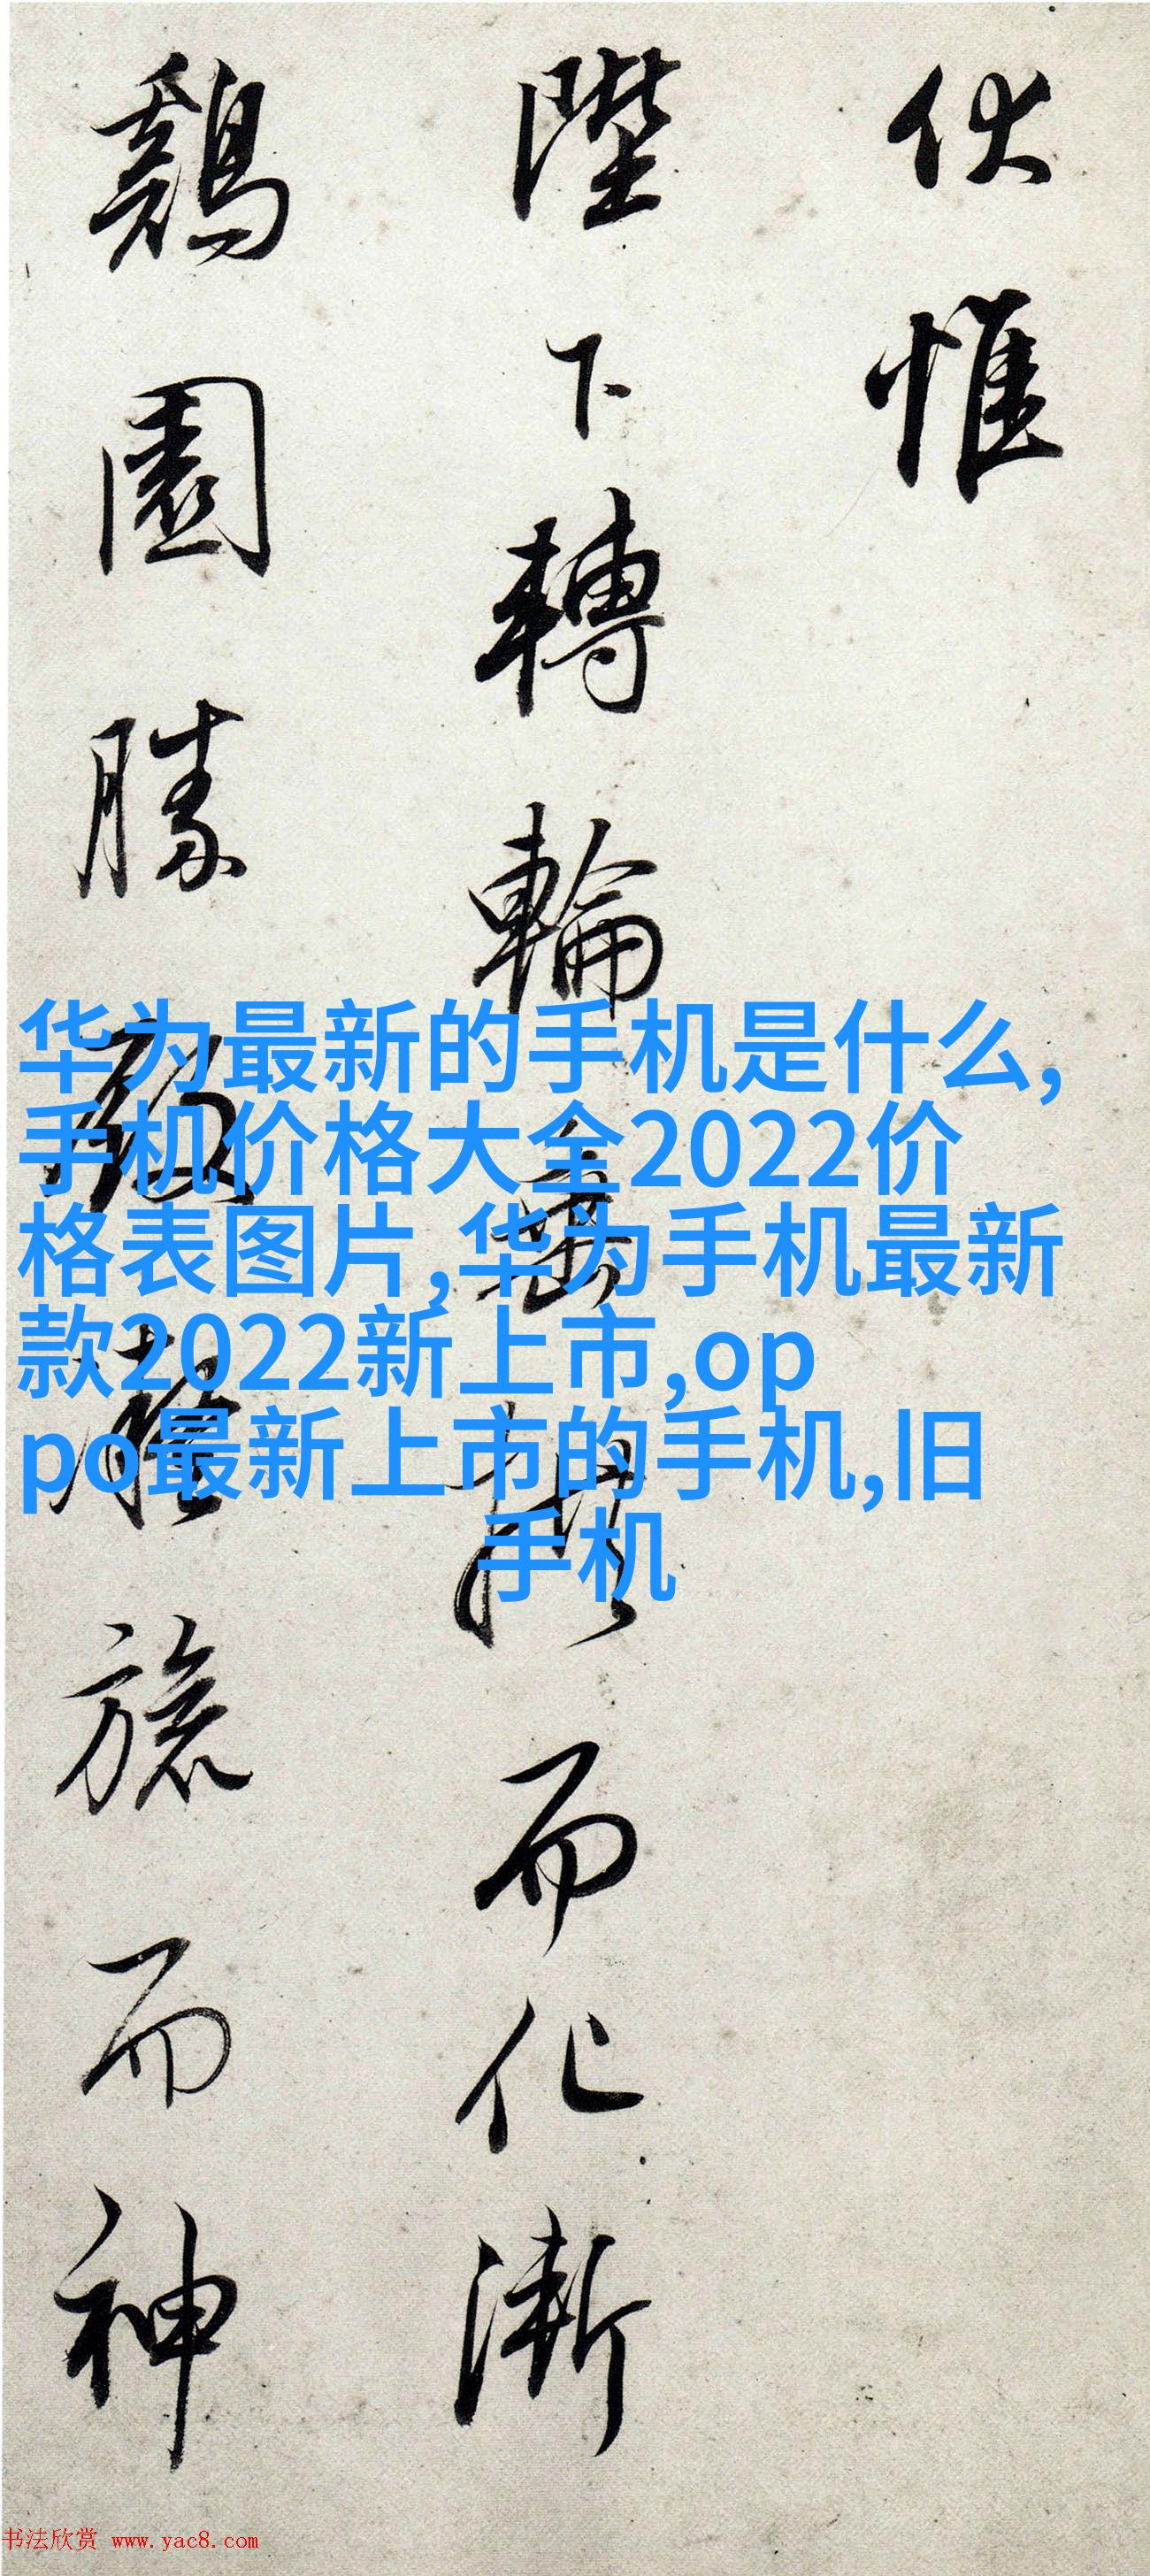 伏惟
陛下轉輪垂拱而化漸
鷄園勝殿凝旒而神
华为最新的手机是什么,
手机价格大全2022价
格表图片,华为手机最新
款2022新上市,op
po最新上市的手机,旧
手机
书法欣赏 www.yac8.com